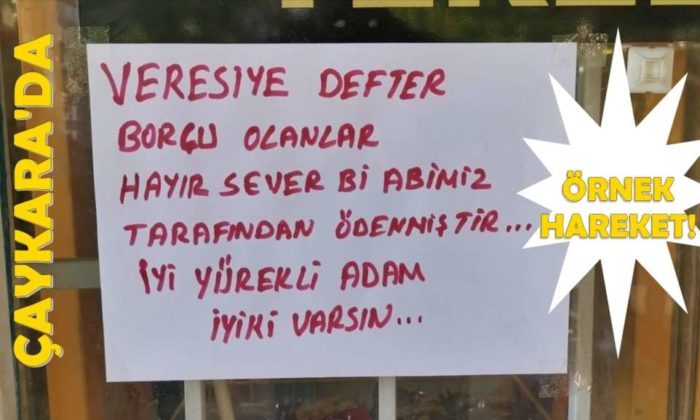 ÇAYKARA'DA
VERESİYE DEFTER
BORÇU OLANLAR
HAYIR SEVER Bİ ABİMİZ
TARAFINDAN ÖDENMİŞTİR...
İYİ YÜREKLİ ADAM
İYİKİ VARSIN...
ÖRNEK
HAREKET!